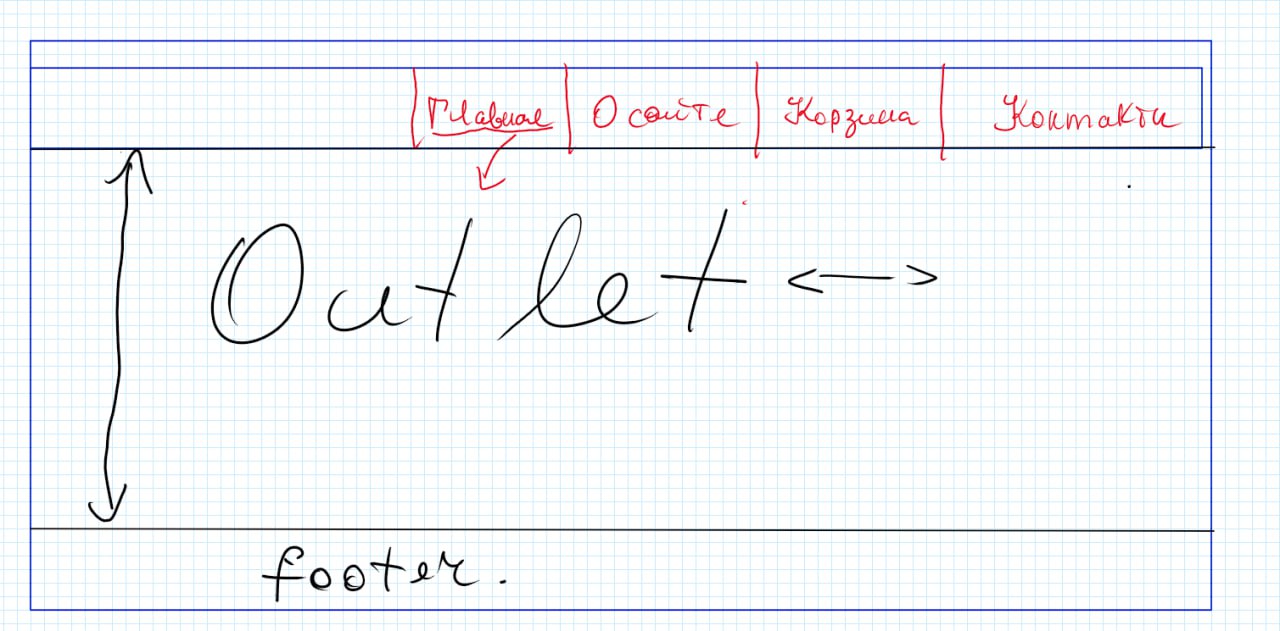 Главная О сайте Корзина Контакти
Outlet
footer.